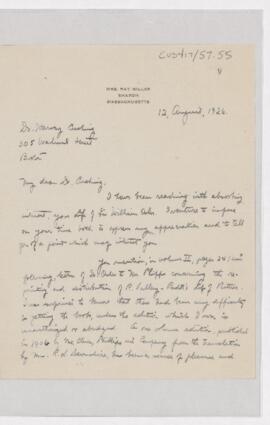 CUS417/57.55
MRS. RAY MILLER
SHARON
MASSACHUSETTS
12 August, 1926.
Dr. Harvey Cushing
305 Walnut Street
My dear Dr. Cushing:
I have been reading with absorbing
interest, your Life of Sir William Osler. I venture to impose
on your time both to express my appreciation and to tell
you of a point which may interest you.
You mention, in volume II, pages
letters of Dr. Osler to Mr. Phipps concerning the re-
printing and distribution of R. Vallery-Radot's Life of Pasteur.
I was surprised to know that there had been any difficulty
in getting the book, unless the edition which I own is
unauthorized or abridged. A one volume edition, published
in 1906 by McClure, Phillips and Company from the translation
by Mrs. R. L. Devonshire, has been a source of pleasure and